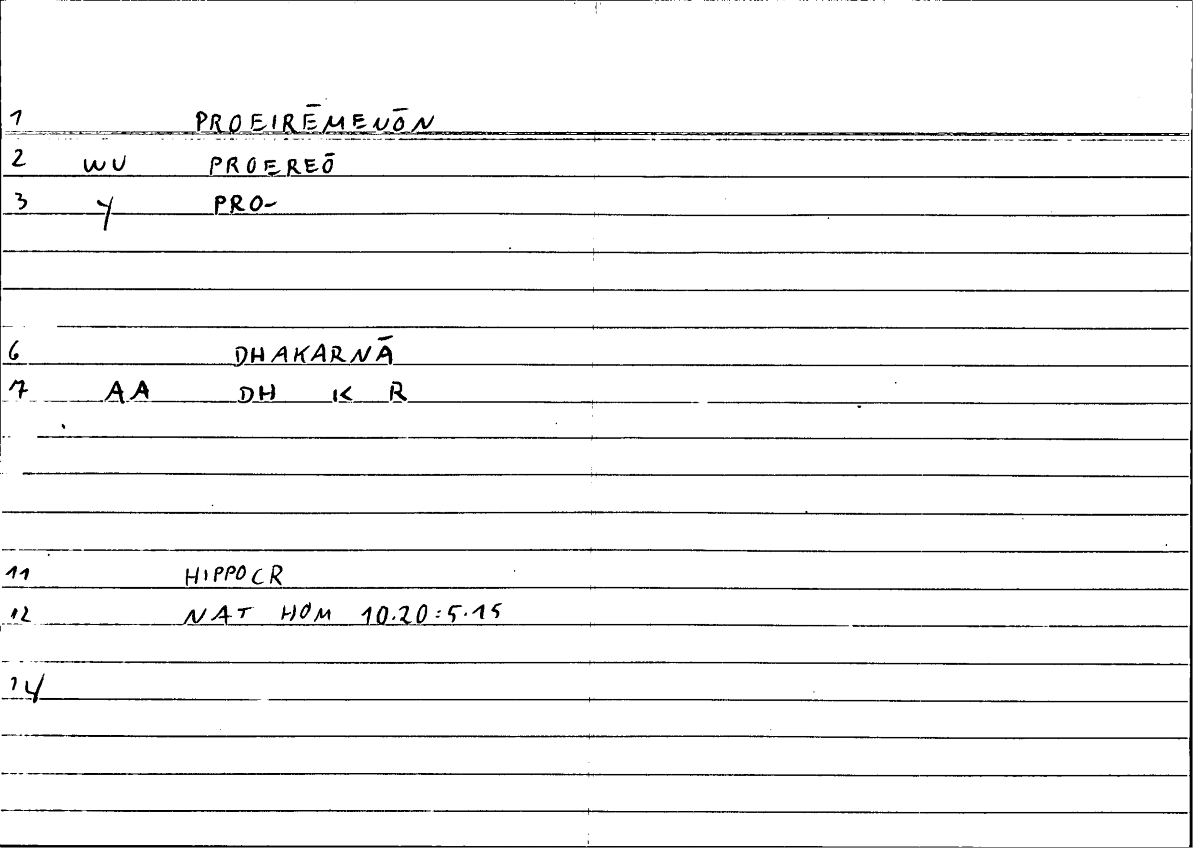 1 PROEIRĒMENŌN
2 WU PROEREŌ
3 Y PRO-
6 DHAKARNĀ
7 AA DH K R
11 HIPPOCR
12 NAT HOM 10.20:5.15
14